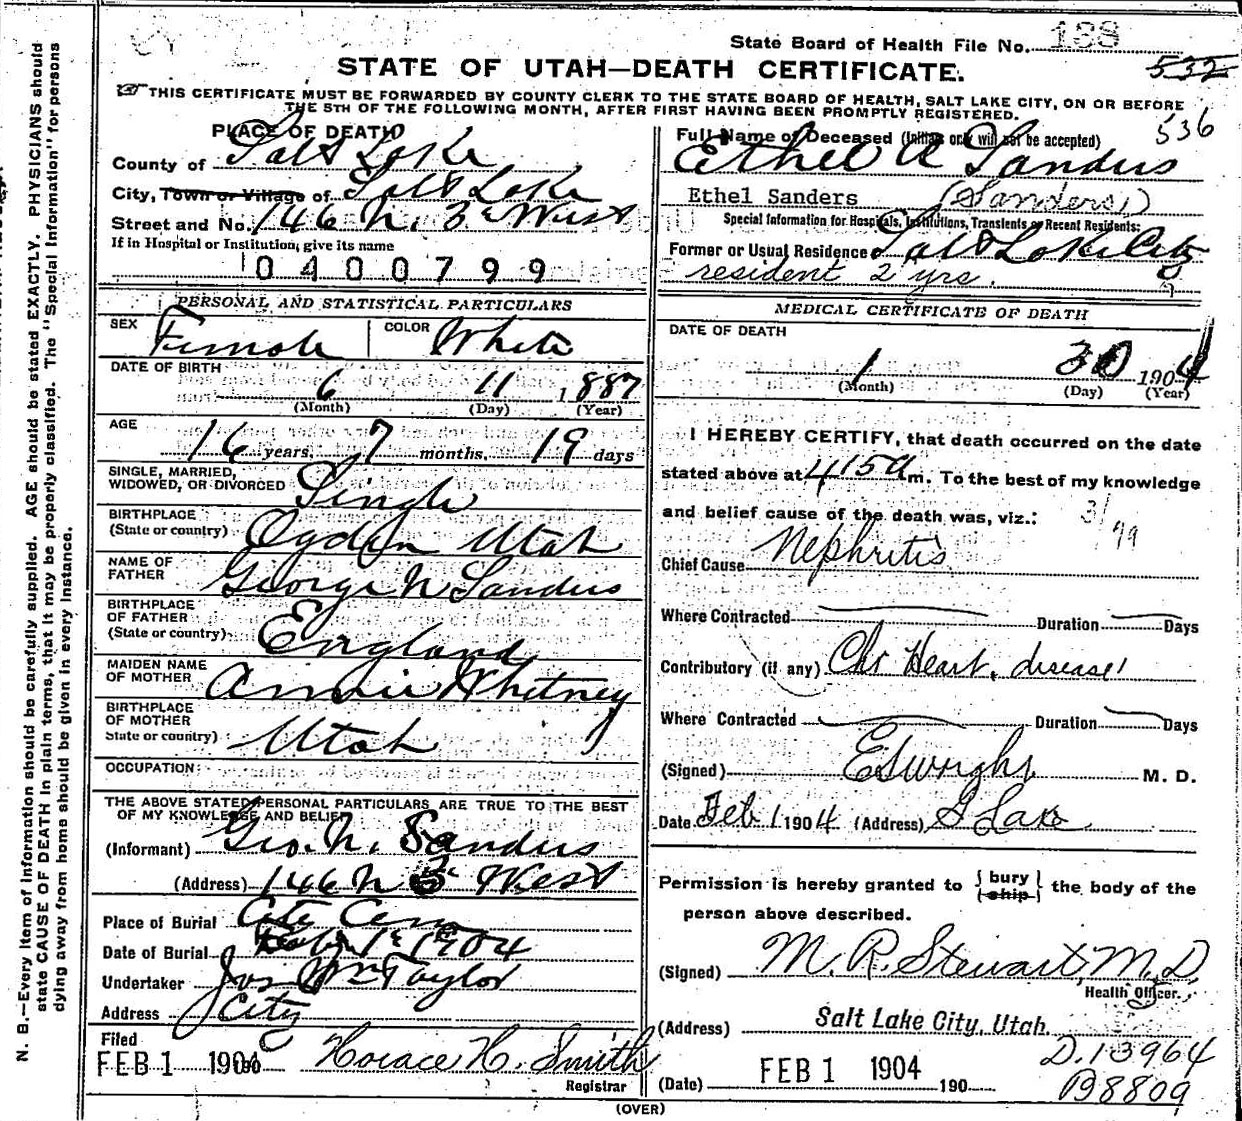 State Board of Health File No. 188
532
STATE OF UTAH—DEATH CERTIFICATE.
☞THIS CERTIFICATE MUST BE FORWARDED BY COUNTY CLERK TO THE STATE BOARD OF HEALTH, SALT LAKE CITY, ON OR BEFORE
THE 5TH OF THE FOLLOWING MONTH, AFTER FIRST HAVING BEEN PROMPTLY REGISTERED.
536
PLACE OF DEATH
County of Salt Lake
City, Town or Village of Salt Lake
Street and No. 146 N. 3d West
If in Hospital or Institution, give its name
0400799
Full Name of Deceased (Initials only will not be accepted)
Ethel R Sanders
Ethel Sanders (Sanders)
Special Information for Hospitals, Institutions, Transients or Recent Residents:
Former or Usual Residence Salt Lake City
resident 2 yrs.
PERSONAL AND STATISTICAL PARTICULARS
SEX Female
COLOR White
DATE OF BIRTH
6 11 1887
(Month) (Day) (Year)
AGE
16 years, 7 months, 19 days
SINGLE, MARRIED,
WIDOWED, OR DIVORCED Single
BIRTHPLACE
(State or country) Ogden Utah
NAME OF
FATHER George N Sanders
BIRTHPLACE
OF FATHER
(State or country) England
MAIDEN NAME
OF MOTHER Annie Whitney
BIRTHPLACE
OF MOTHER
State or country) Utah
OCCUPATION
THE ABOVE STATED PERSONAL PARTICULARS ARE TRUE TO THE BEST
OF MY KNOWLEDGE AND BELIEF
(Informant) Geo. N. Sanders
(Address) 146 N 3 West
Place of Burial City Cem
Date of Burial Feb 1st 1904
Undertaker Jos Wm Taylor
Address City
Filed
FEB 1 1904 Horace H. Smith
Registrar
MEDICAL CERTIFICATE OF DEATH
DATE OF DEATH
1 30 1904
(Month) (Day) (Year)
I HEREBY CERTIFY, that death occurred on the date
stated above at 4 15 a m. To the best of my knowledge
and belief cause of the death was, viz.:
3/99
Chief Cause Nephritis
Where Contracted Duration Days
Contributory (if any) Chr Heart disease
Where Contracted Duration Days
(Signed) E S Wright M. D.
Date Feb 1 1904 (Address) S Lake
Permission is hereby granted to { bury / ship } the body of the
person above described.
(Signed) M. R. Stewart, M.D.
Health Officer.
(Address) Salt Lake City, Utah
(Date) FEB 1 1904 190
D.13964
B8809
(OVER)
N. B.—Every item of information should be carefully supplied. AGE should be stated EXACTLY. PHYSICIANS should
state CAUSE OF DEATH in plain terms, that it may be properly classified. The "Special Information" for persons
dying away from home should be given in every instance.